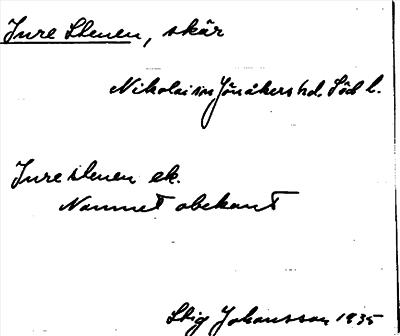 Ture Stenen, skär
Nikolai sn Jönåkers hd. Söd l.
Ture stenen ek.
Namnet obekant
Stig Johansson 1935